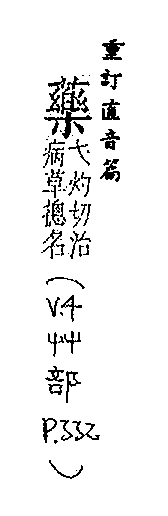 重訂直音篇
藥
弋灼切治
病草總名
(V.4
艸部
P.332)